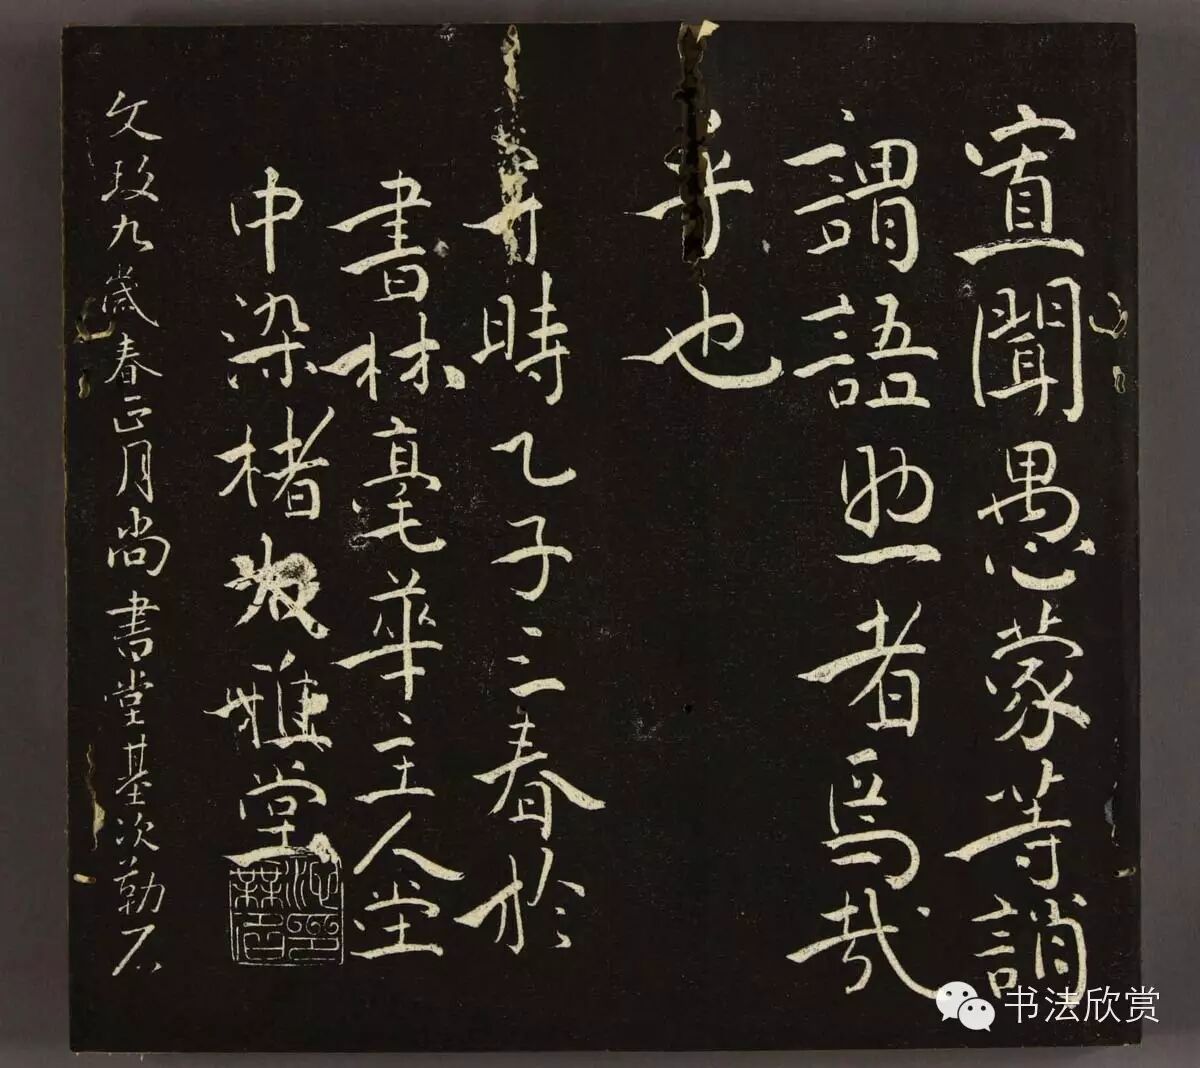 寡聞愚蒙等誚
謂語助者焉哉
乎也
時乙子三春於
書林毫華主人堂
中染楮 雅堂
文政九歲春正月尚書堂基次勒石
书法欣赏